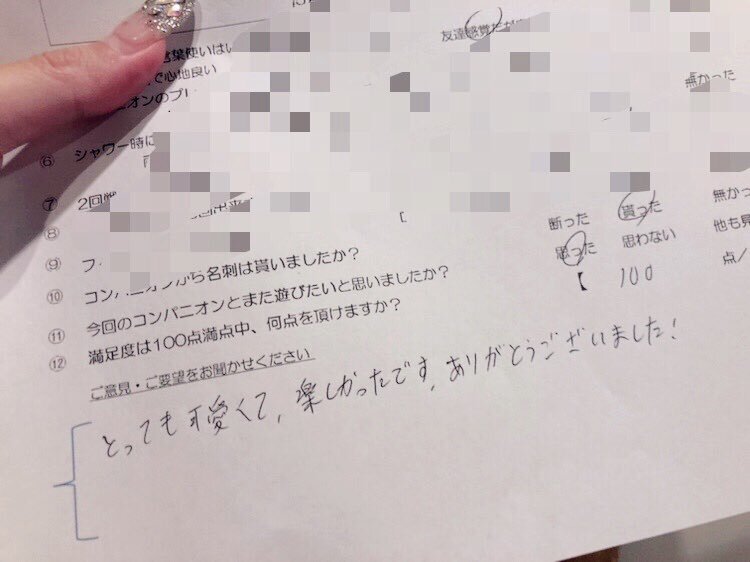 友達感覚だ
言葉使いは
で心地良い
オンのプ
無かった
⑥ シャワー時に
⑦ 2回
⑧
⑨ フ
断った 貰った 無かっ
⑩ コンパニオンから名刺は貰いましたか?
思った 思わない 他も見
⑪ 今回のコンパニオンとまた遊びたいと思いましたか?
【 100 点/
⑫ 満足度は100点満点中、何点を頂けますか?
ご意見・ご要望をお聞かせください
とっても可愛くて、楽しかったです、ありがとうございました!